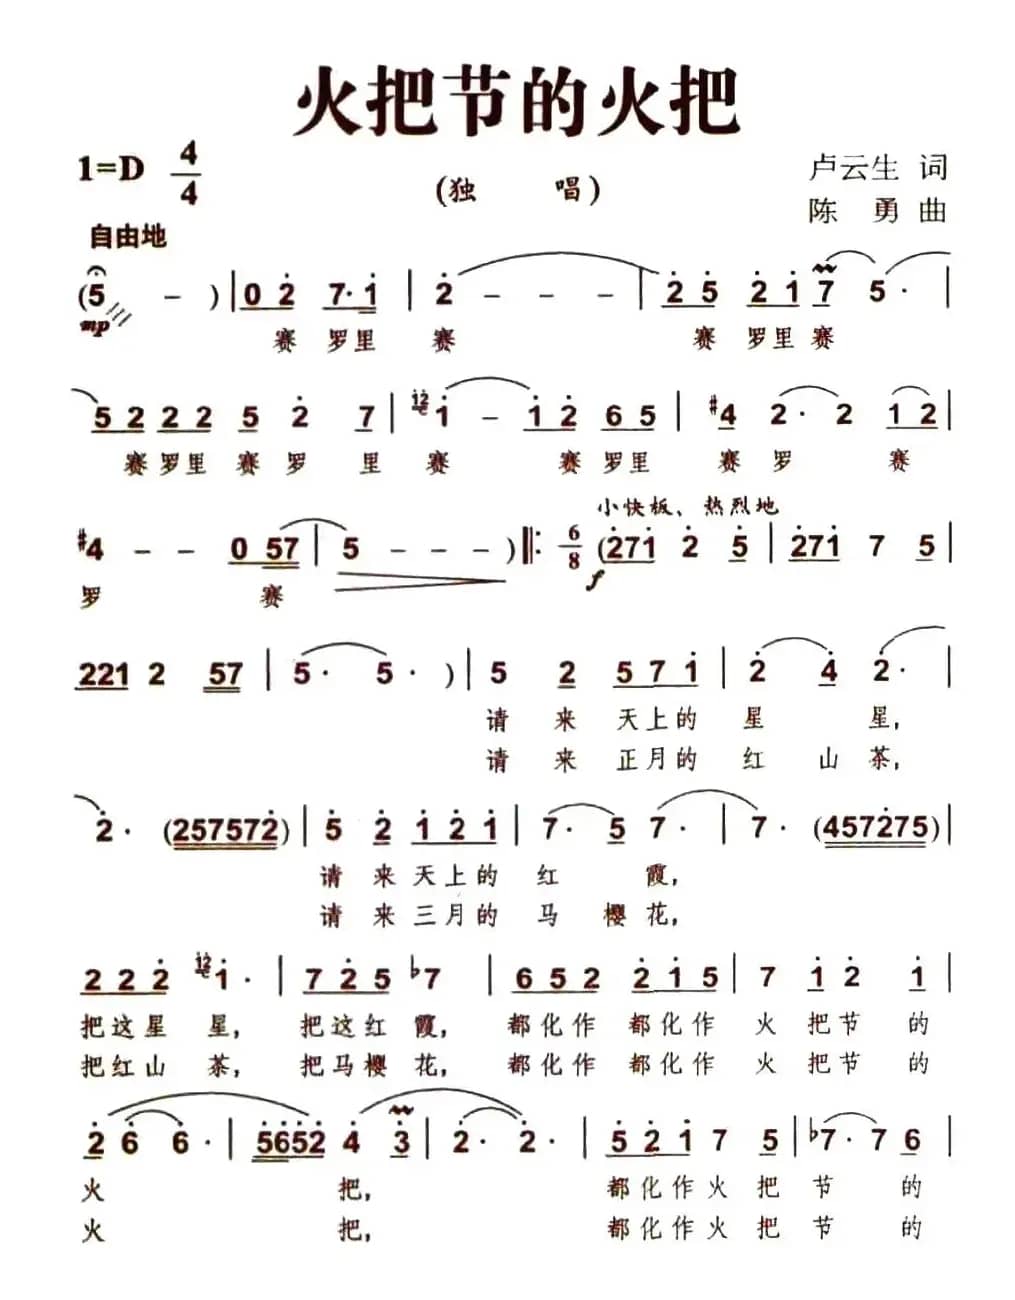 火把节的火把
1=D 4/4
(独 唱)
卢云生 词
陈 勇 曲
自由地
(5 - ) | 0 2 7· 1 | 2 - - - | 2 5 2 1 7 5· |
mp
赛 罗里 赛 赛 罗里 赛
5 2 2 2 5 2 7 | 12 1 - 1 2 6 5 | #4 2· 2 1 2 |
赛罗里 赛 罗 里 赛 赛罗里 赛 罗 赛
小快板、热烈地
#4 - - 0 57 | 5 - - - ) ‖: 6/8 (271 2 5 | 271 7 5 |
f
罗 赛
221 2 57 | 5· 5· ) | 5 2 5 7 1 | 2 4 2· |
请 来 天上的 星 星,
请 来 正月的 红 山 茶,
2· (257572) | 5 2 1 2 1 | 7· 5 7· | 7· (457275) |
请 来 天上的 红 霞,
请 来 三月的 马 樱 花,
2 2 2 12 1· | 7 2 5 b7 | 6 5 2 2 1 5 | 7 1 2 1 |
把这星 星, 把这红 霞, 都化作 都化作 火 把节 的
把红山 茶, 把马樱 花, 都化作 都化作 火 把节 的
2 6 6· | 5652 4 3 | 2· 2· | 5 2 1 7 5 | b7· 7 6 |
火 把, 都化作火 把 节 的
火 把, 都化作火 把 节 的